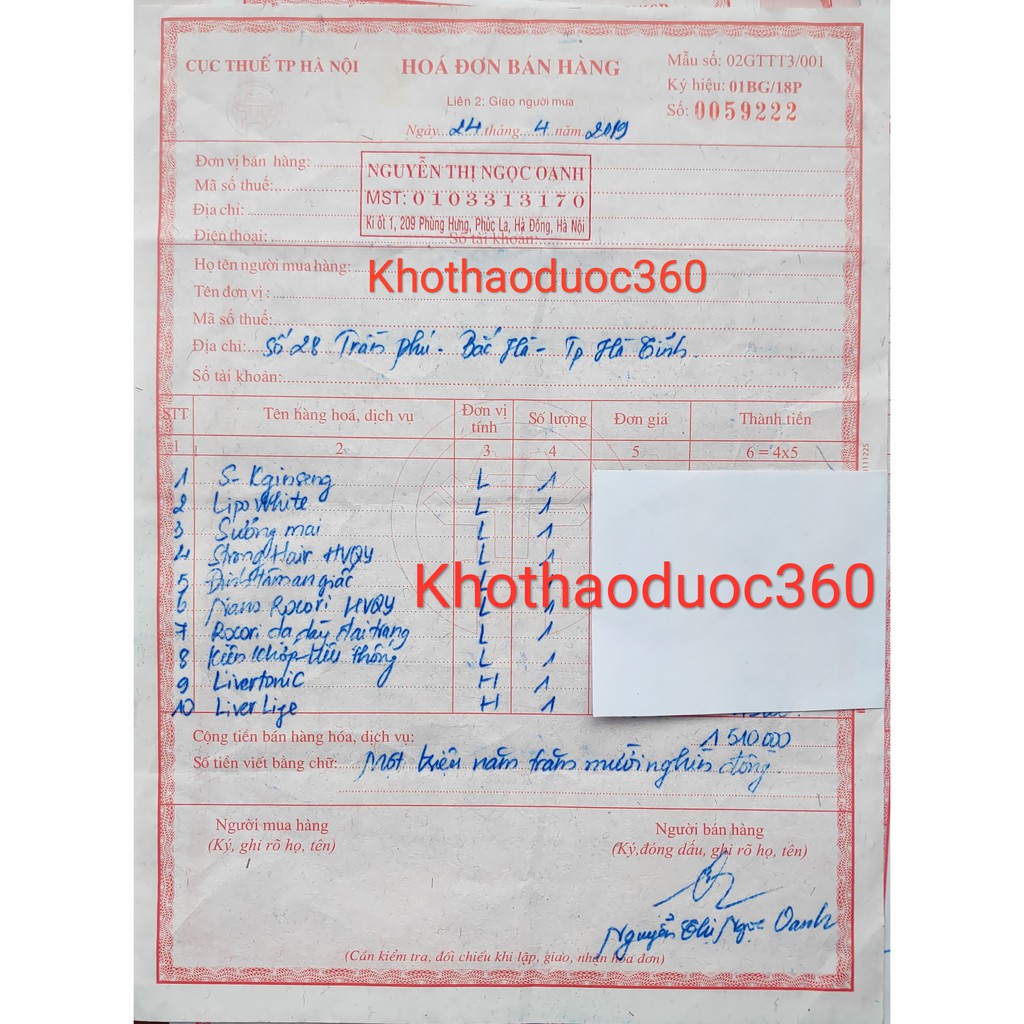 CỤC THUẾ TP HÀ NỘI
HOÁ ĐƠN BÁN HÀNG
Liên 2: Giao người mua
Ngày 24 tháng 4 năm 2019
Mẫu số: 02GTTT3/001
Ký hiệu: 01BG/18P
Số: 0059222
Đơn vị bán hàng:
Mã số thuế:
Địa chỉ:
Điện thoại: Số tài khoản:
NGUYỄN THỊ NGỌC OANH
MST: 0103313170
Ki ốt 1, 209 Phùng Hưng, Phúc La, Hà Đông, Hà Nội
Họ tên người mua hàng: Khothaoduoc360
Tên đơn vị:
Mã số thuế:
Địa chỉ: Số 28 Trần phú - Bắc Hà - Tp Hà Tĩnh
Số tài khoản:
STT Tên hàng hoá, dịch vụ Đơn vị tính Số lượng Đơn giá Thành tiền
1 2 3 4 5 6 = 4x5
1 S-Kginseng L 1
2 Lipo White L 1
3 Sương mai L 1
4 Strong Hair HVQY L 1
5 Định tâm an giấc L
6 Nano Rocori HVQY L 1
7 Rocori dạ dày đại tràng L 1
8 Kiện khớp L 1
9 Livertonic H 1
10 Liver Lige H 1
Khothaoduoc360
Cộng tiền bán hàng hóa, dịch vụ: 1510.000
Số tiền viết bằng chữ: Một triệu năm trăm mười nghìn đồng
Người mua hàng
(Ký, ghi rõ họ, tên)
Người bán hàng
(Ký, đóng dấu, ghi rõ họ, tên)
Nguyễn Thị Ngọc Oanh
(Cần kiểm tra, đối chiếu khi lập, giao, nhận hóa đơn)